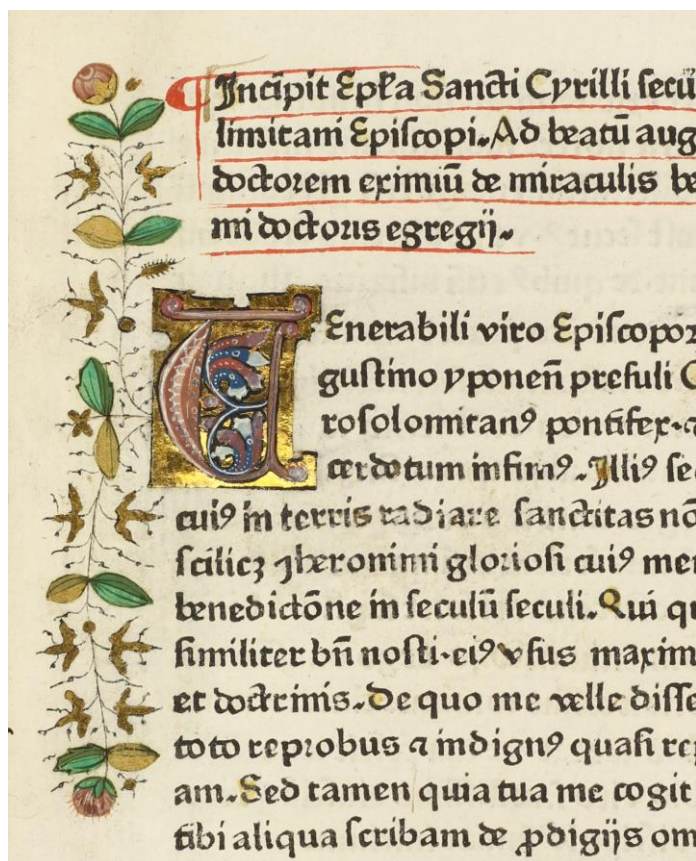 Incipit Ep̄ła Sancti Cyrilli secū
limitani Episcopi. Ad beatū aug
doctorem eximiū de miraculis be
mi doctoris egregij.
VEnerabili viro Episcopoꝝ
gustino yponeñ presuli C
rosolomitanꝰ pontifex. ⁊
cerdotum infimꝰ. Illiꝰ se
cuiꝰ in terris radiare sanctitas nō
scilicꝫ Jheronimi gloriosi cuiꝰ mem
benedictōne in seculū seculi. Qui qu
similiter bñ nosti. eiꝰ vsus maxim
et doctrinis. De quo me velle disse
toto reprobus ⁊ indignꝰ quasi rep
am. Sed tamen quia tua me cogit
tibi aliqua scribam de ꝓdigijs om